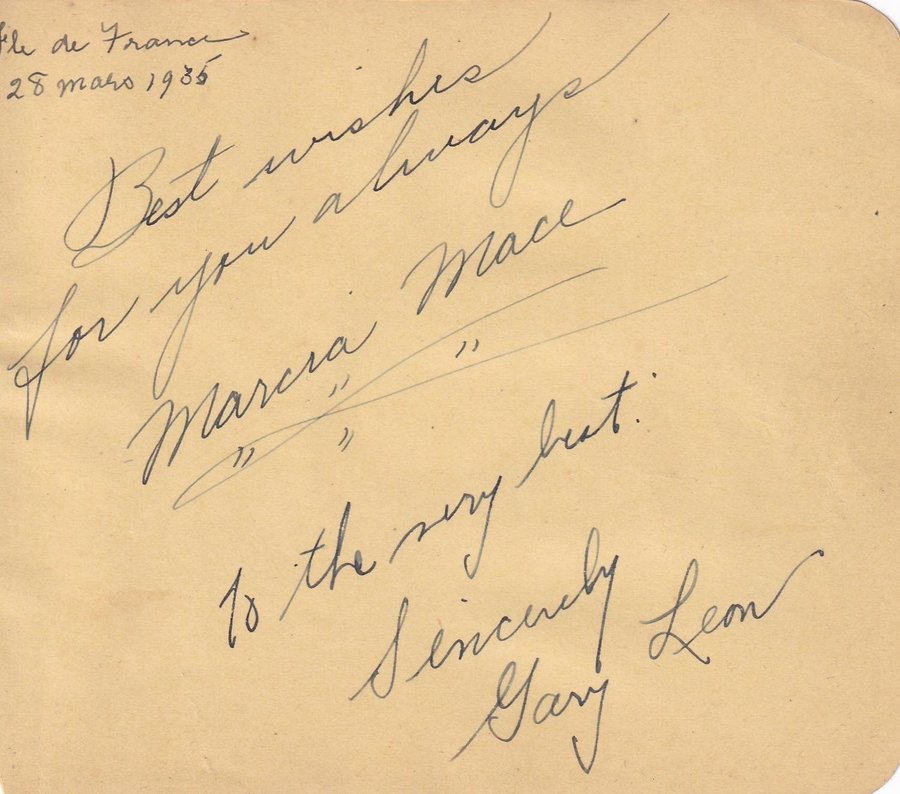 Ile de France
28 mars 1935
Best wishes
for you always
Marcia Mace
" " " "
To the very best.
Sincerely
Gary Leon